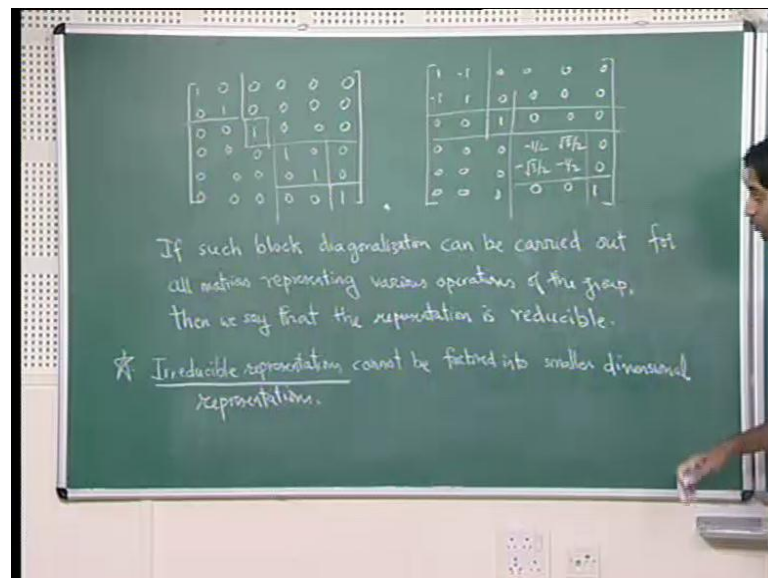 1 0 0 0 0 0 1 -1 0 0 0 0
0 1 0 0 0 0 -1 1 0 0 0 0
0 0 1 0 0 0 0 0 1 0 0 0
0 0 0 1 0 0 0 0 0 -1/2 √3/2 0
0 0 0 0 1 0 0 0 0 -√3/2 -1/2 0
0 0 0 0 0 1 0 0 0 0 0 1
If such block diagonalization can be carried out for
all matrices representing various operations of the group,
then we say that the representation is reducible.
☆ Irreducible representations cannot be factored into smaller dimensional
representations.